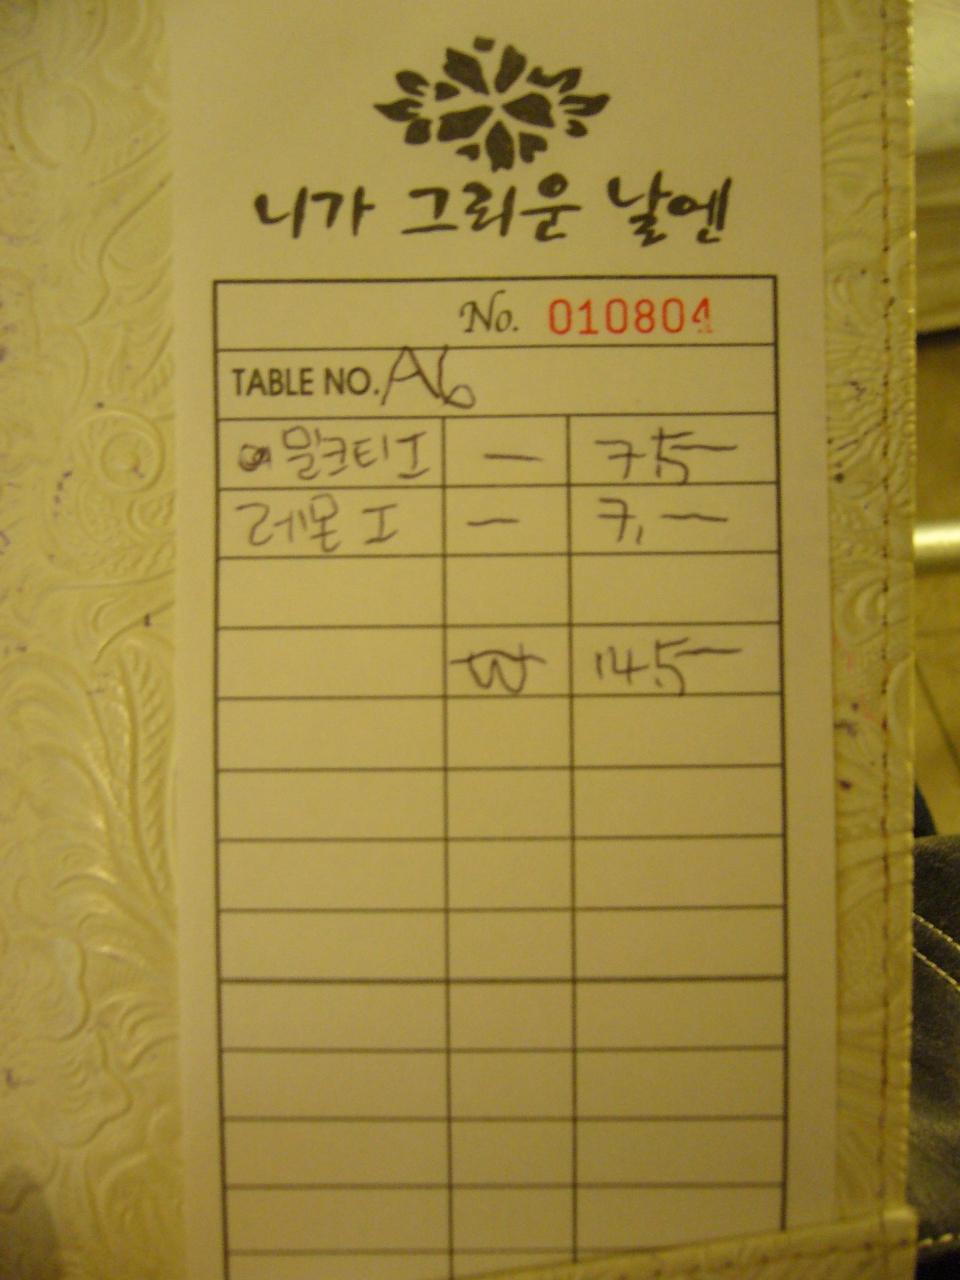 니가 그리운 날엔
No. 010804
TABLE NO. A6
밀크티 I — 7.5—
레몬 I — 7,—
₩ 14.5—